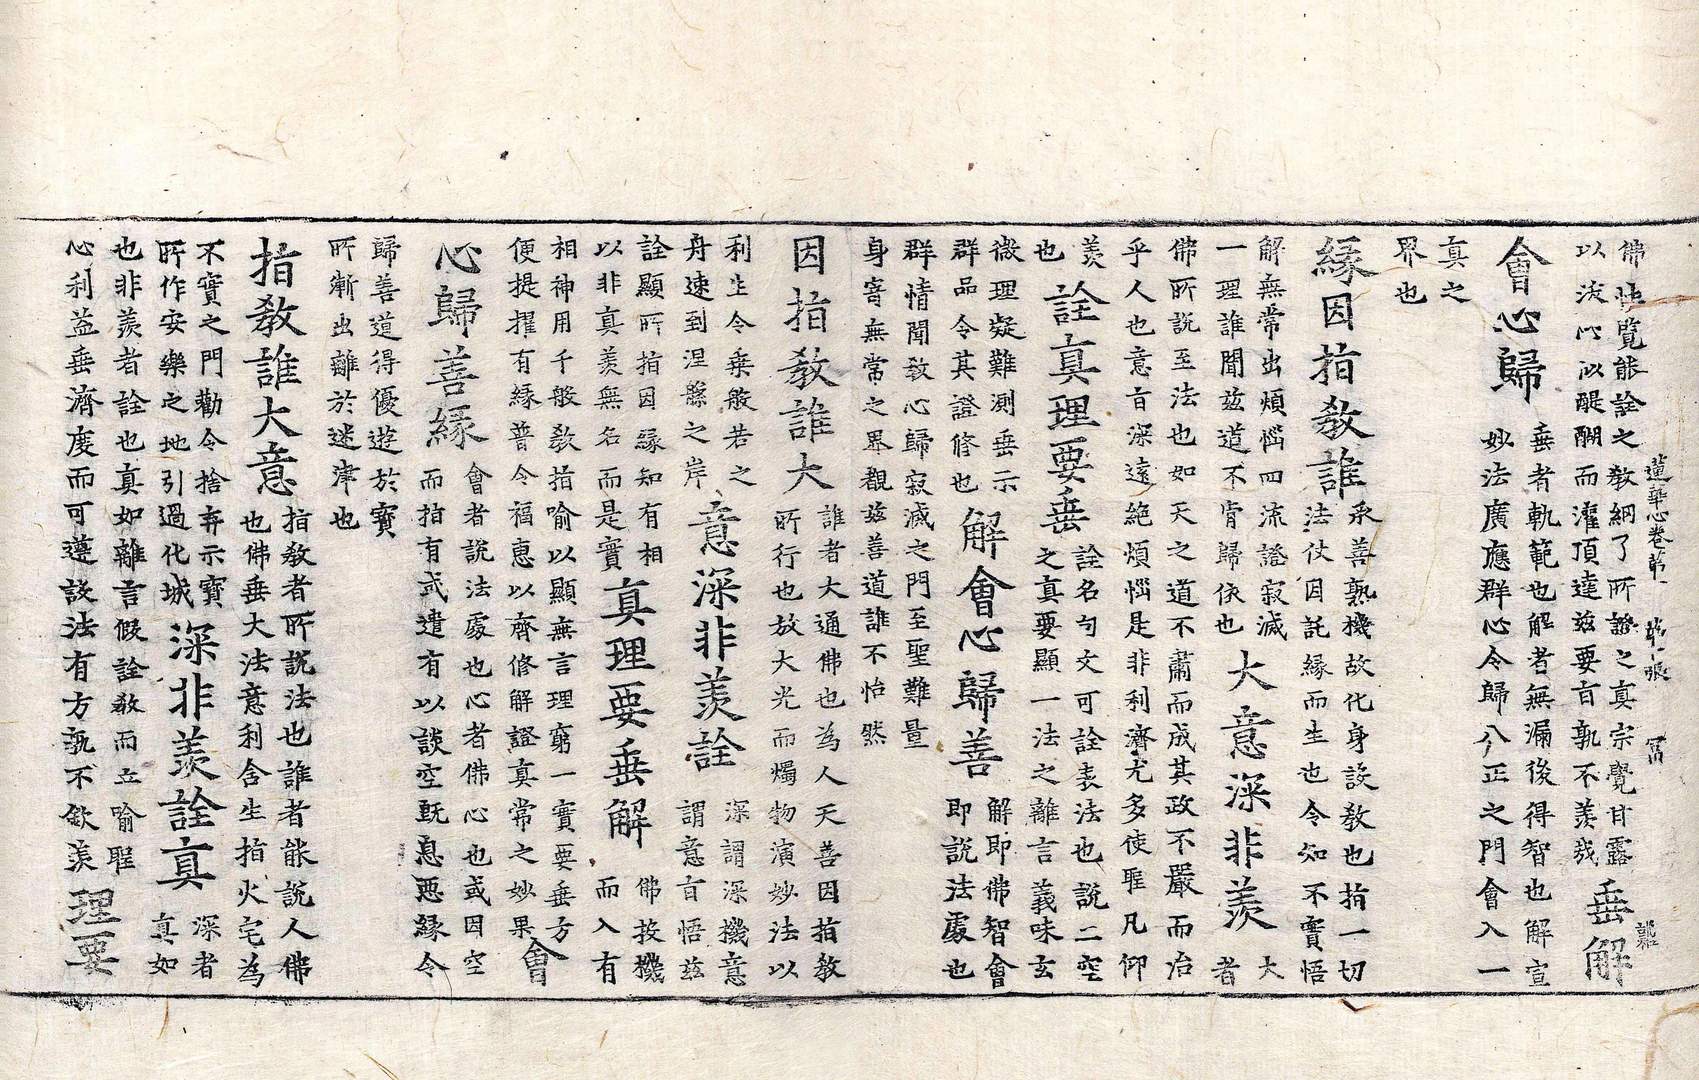 佛性覽能詮之教網了所證之真宗覺甘露
以淺心以醍醐而灌頂達茲要旨孰不羨哉
垂解
蓮華心卷第一　第一張
會心歸
垂者軌範也解者無漏後得智也解宣
妙法廣應群心令歸八正之門會入一
真之
界也
緣因指教誰
承善熟機故化身設教也指一切
法仗因託緣而生也令知不實悟
解無常出煩惱四流證寂滅
一理誰聞茲道不肯歸依也
大意深非羨
大
者
佛所說至法也如天之道不肅而成其政不嚴而治
乎人也意旨深遠絕煩惱是非利濟尤多使聖凡仰
羨
也
詮真理要垂
詮名句文可詮表法也說二空
之真要顯一法之離言義味玄
微理疑難測垂示
群品令其證修也
解會心歸善
解即佛智會
即說法處也
群情聞教心歸寂滅之門至聖難量
身寄無常之界觀茲善道誰不怡然
因指教誰大
誰者大通佛也為人天善因指教
所行也放大光而燭物演妙法以
利生令乘般若之
舟速到涅槃之岸
意深非羨詮
深謂深機意
謂意旨悟茲
詮顯所指因緣知有相
以非真羨無名而是實
真理要垂解
佛投機
而入有
相神用千般教指喻以顯無言理窮一實要垂方
便提擢有緣普令福惠以齊修解證真常之妙果
會
心歸善緣
會者說法處也心者佛心也或因空
而指有或遣有以談空既息惡緣令
歸善道得優遊於寶
所漸出離於迷津也
指教誰大意
指教者所說法也誰者能說人佛
也佛垂大法意利含生指火宅為
不實之門勸令捨弃示寶
所作安樂之地引過化城
深非羨詮真
深者
真如
也非羨者詮也真如離言假詮教而立喻聖
心利益垂濟度而可遵設法有方孰不欽羨
理要